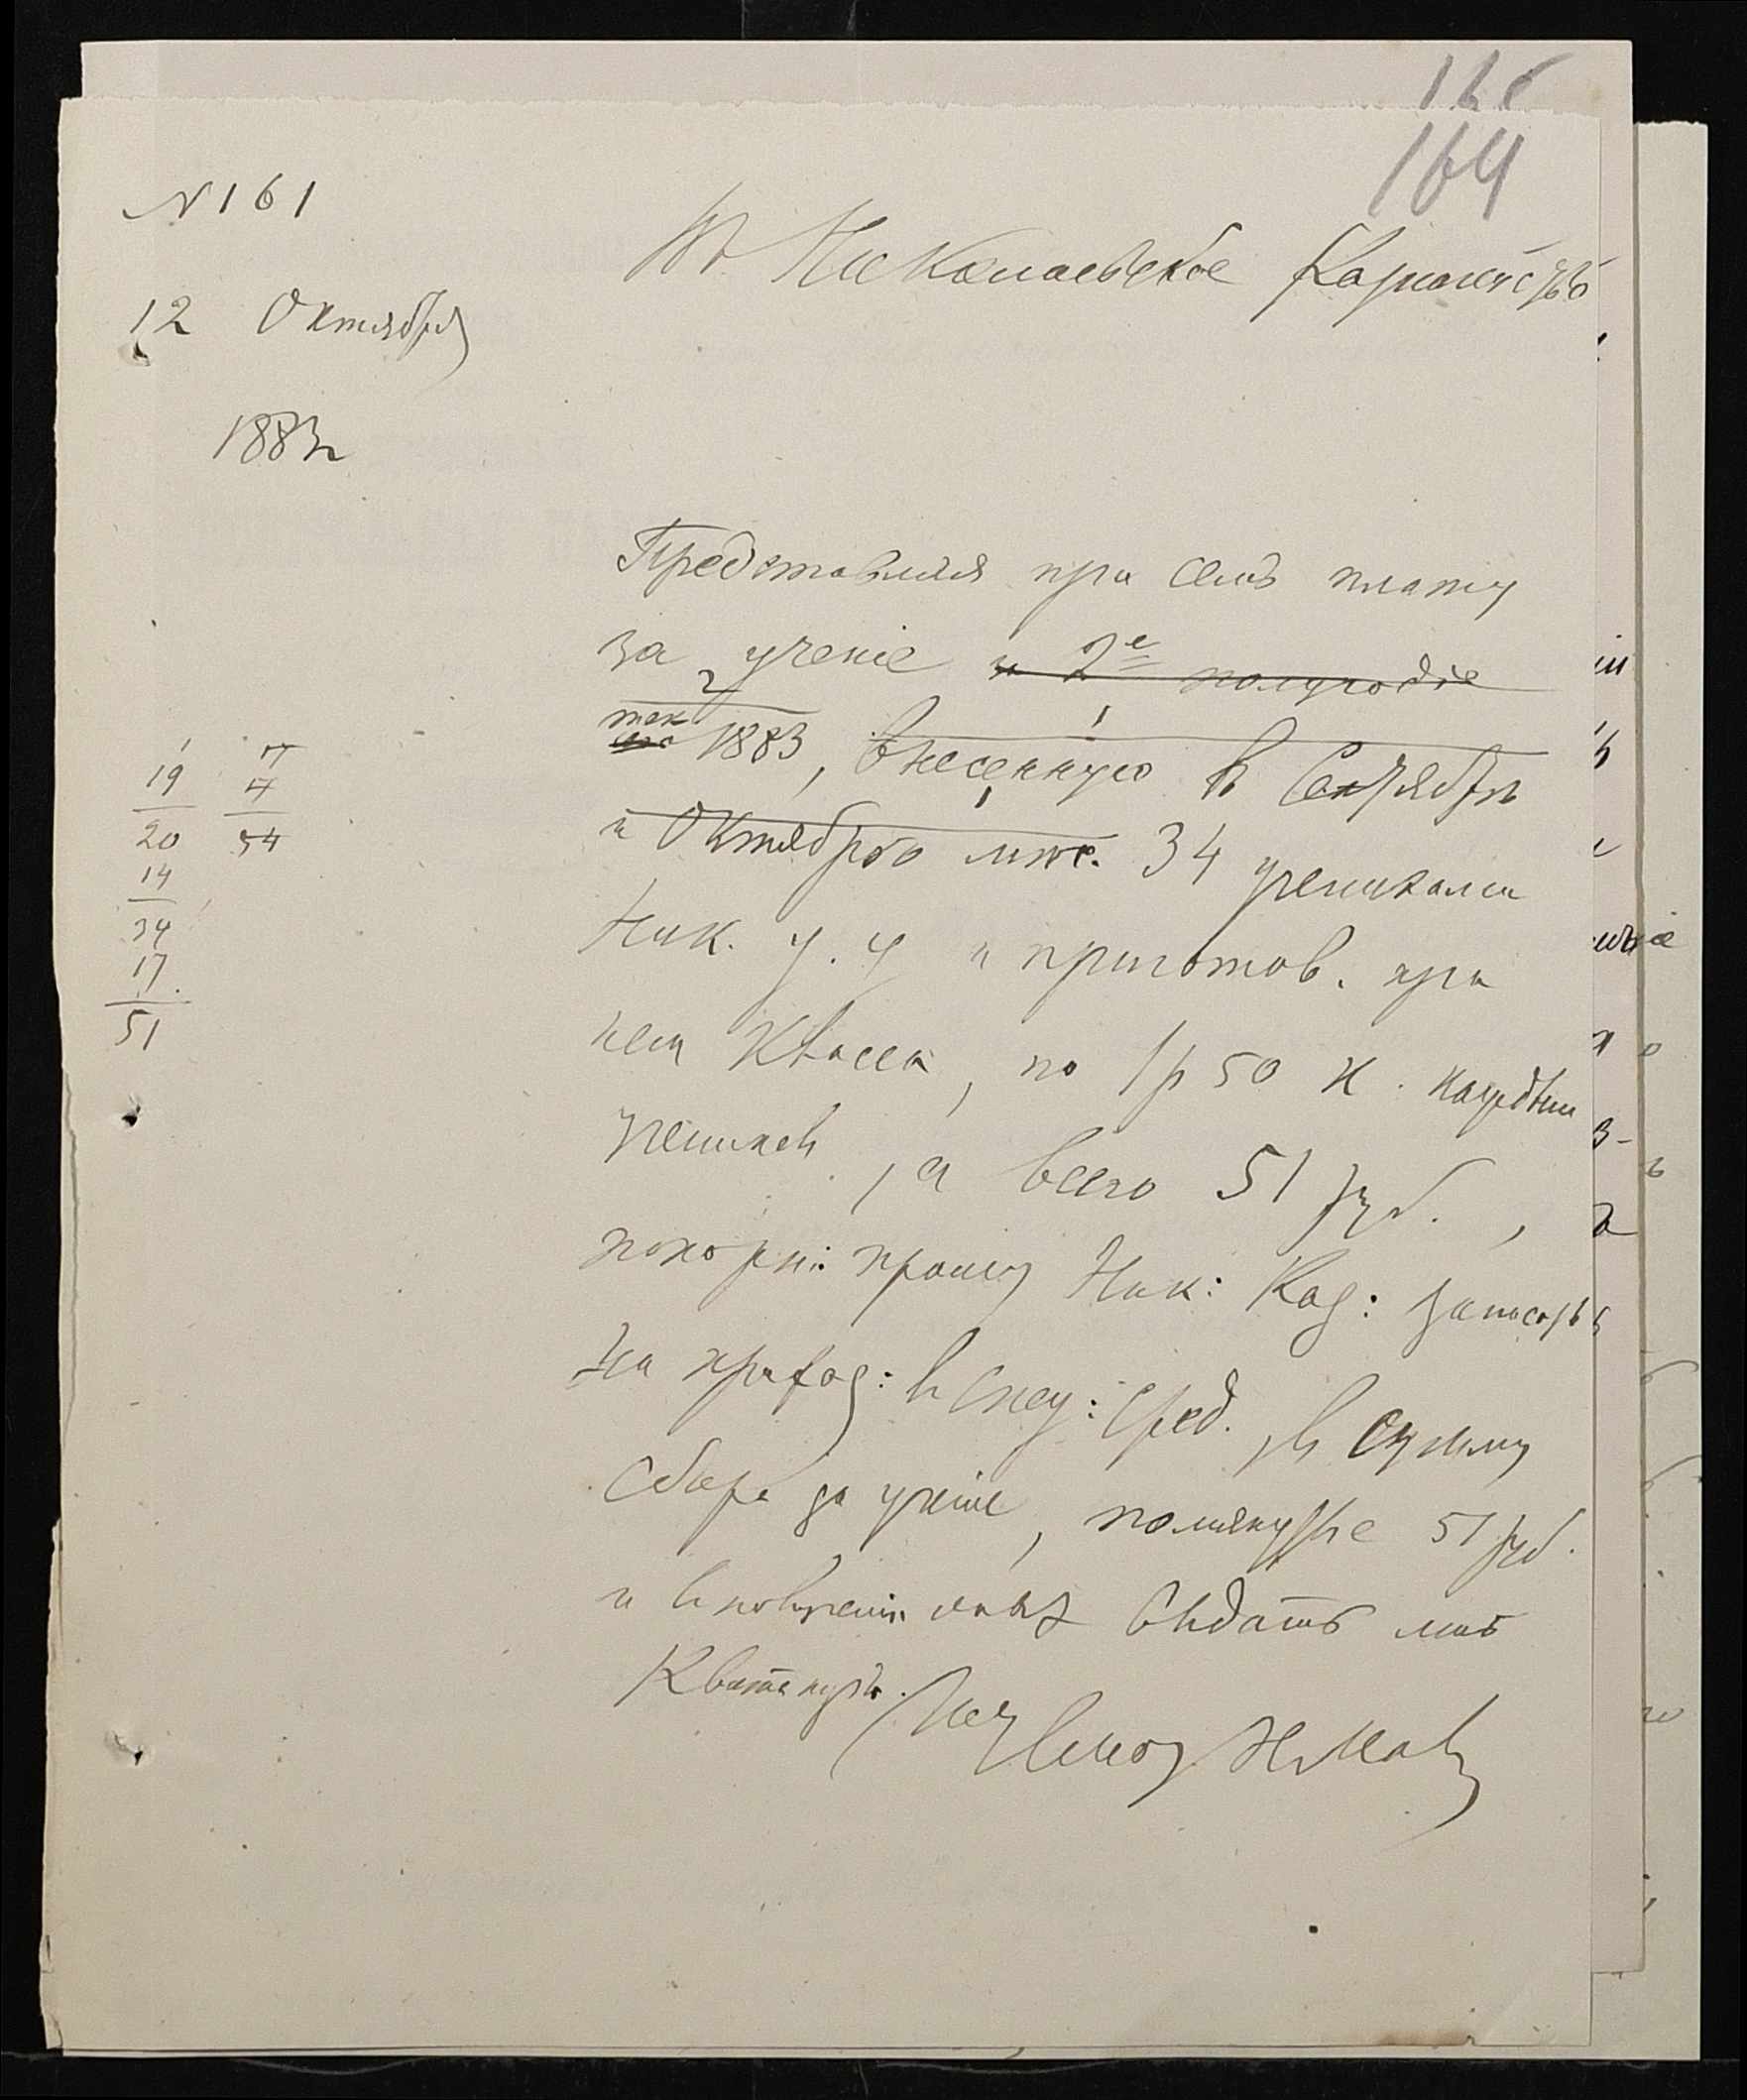 164
N 161
Въ Николаевское Казначейство
12 Октября
1883 г
Представляя при семъ плату
за ученіе и 2е полугодіе
тек 1883, внесенную въ Сентябрѣ
и Октябрѣ мѣс. 34 учениками
Ник. у. у и приготов. при
нем класса, по 1 р 50 к. каждым
ученикѡм, а всего 51 руб.,
покорн: прошу Ник: Каз: записать
на приход: в Спец: сред. в сумму
сбора за ученіе, помянутые 51 руб.
и в получении оных выдать мнѣ
Квитанцію.
19 7
20 54
14
34
17
51